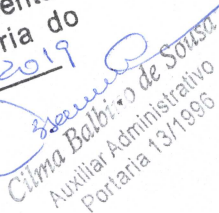 ria do
2019
Cilma Balbino de Sousa
Auxiliar Administrativo
Portaria 13/1996